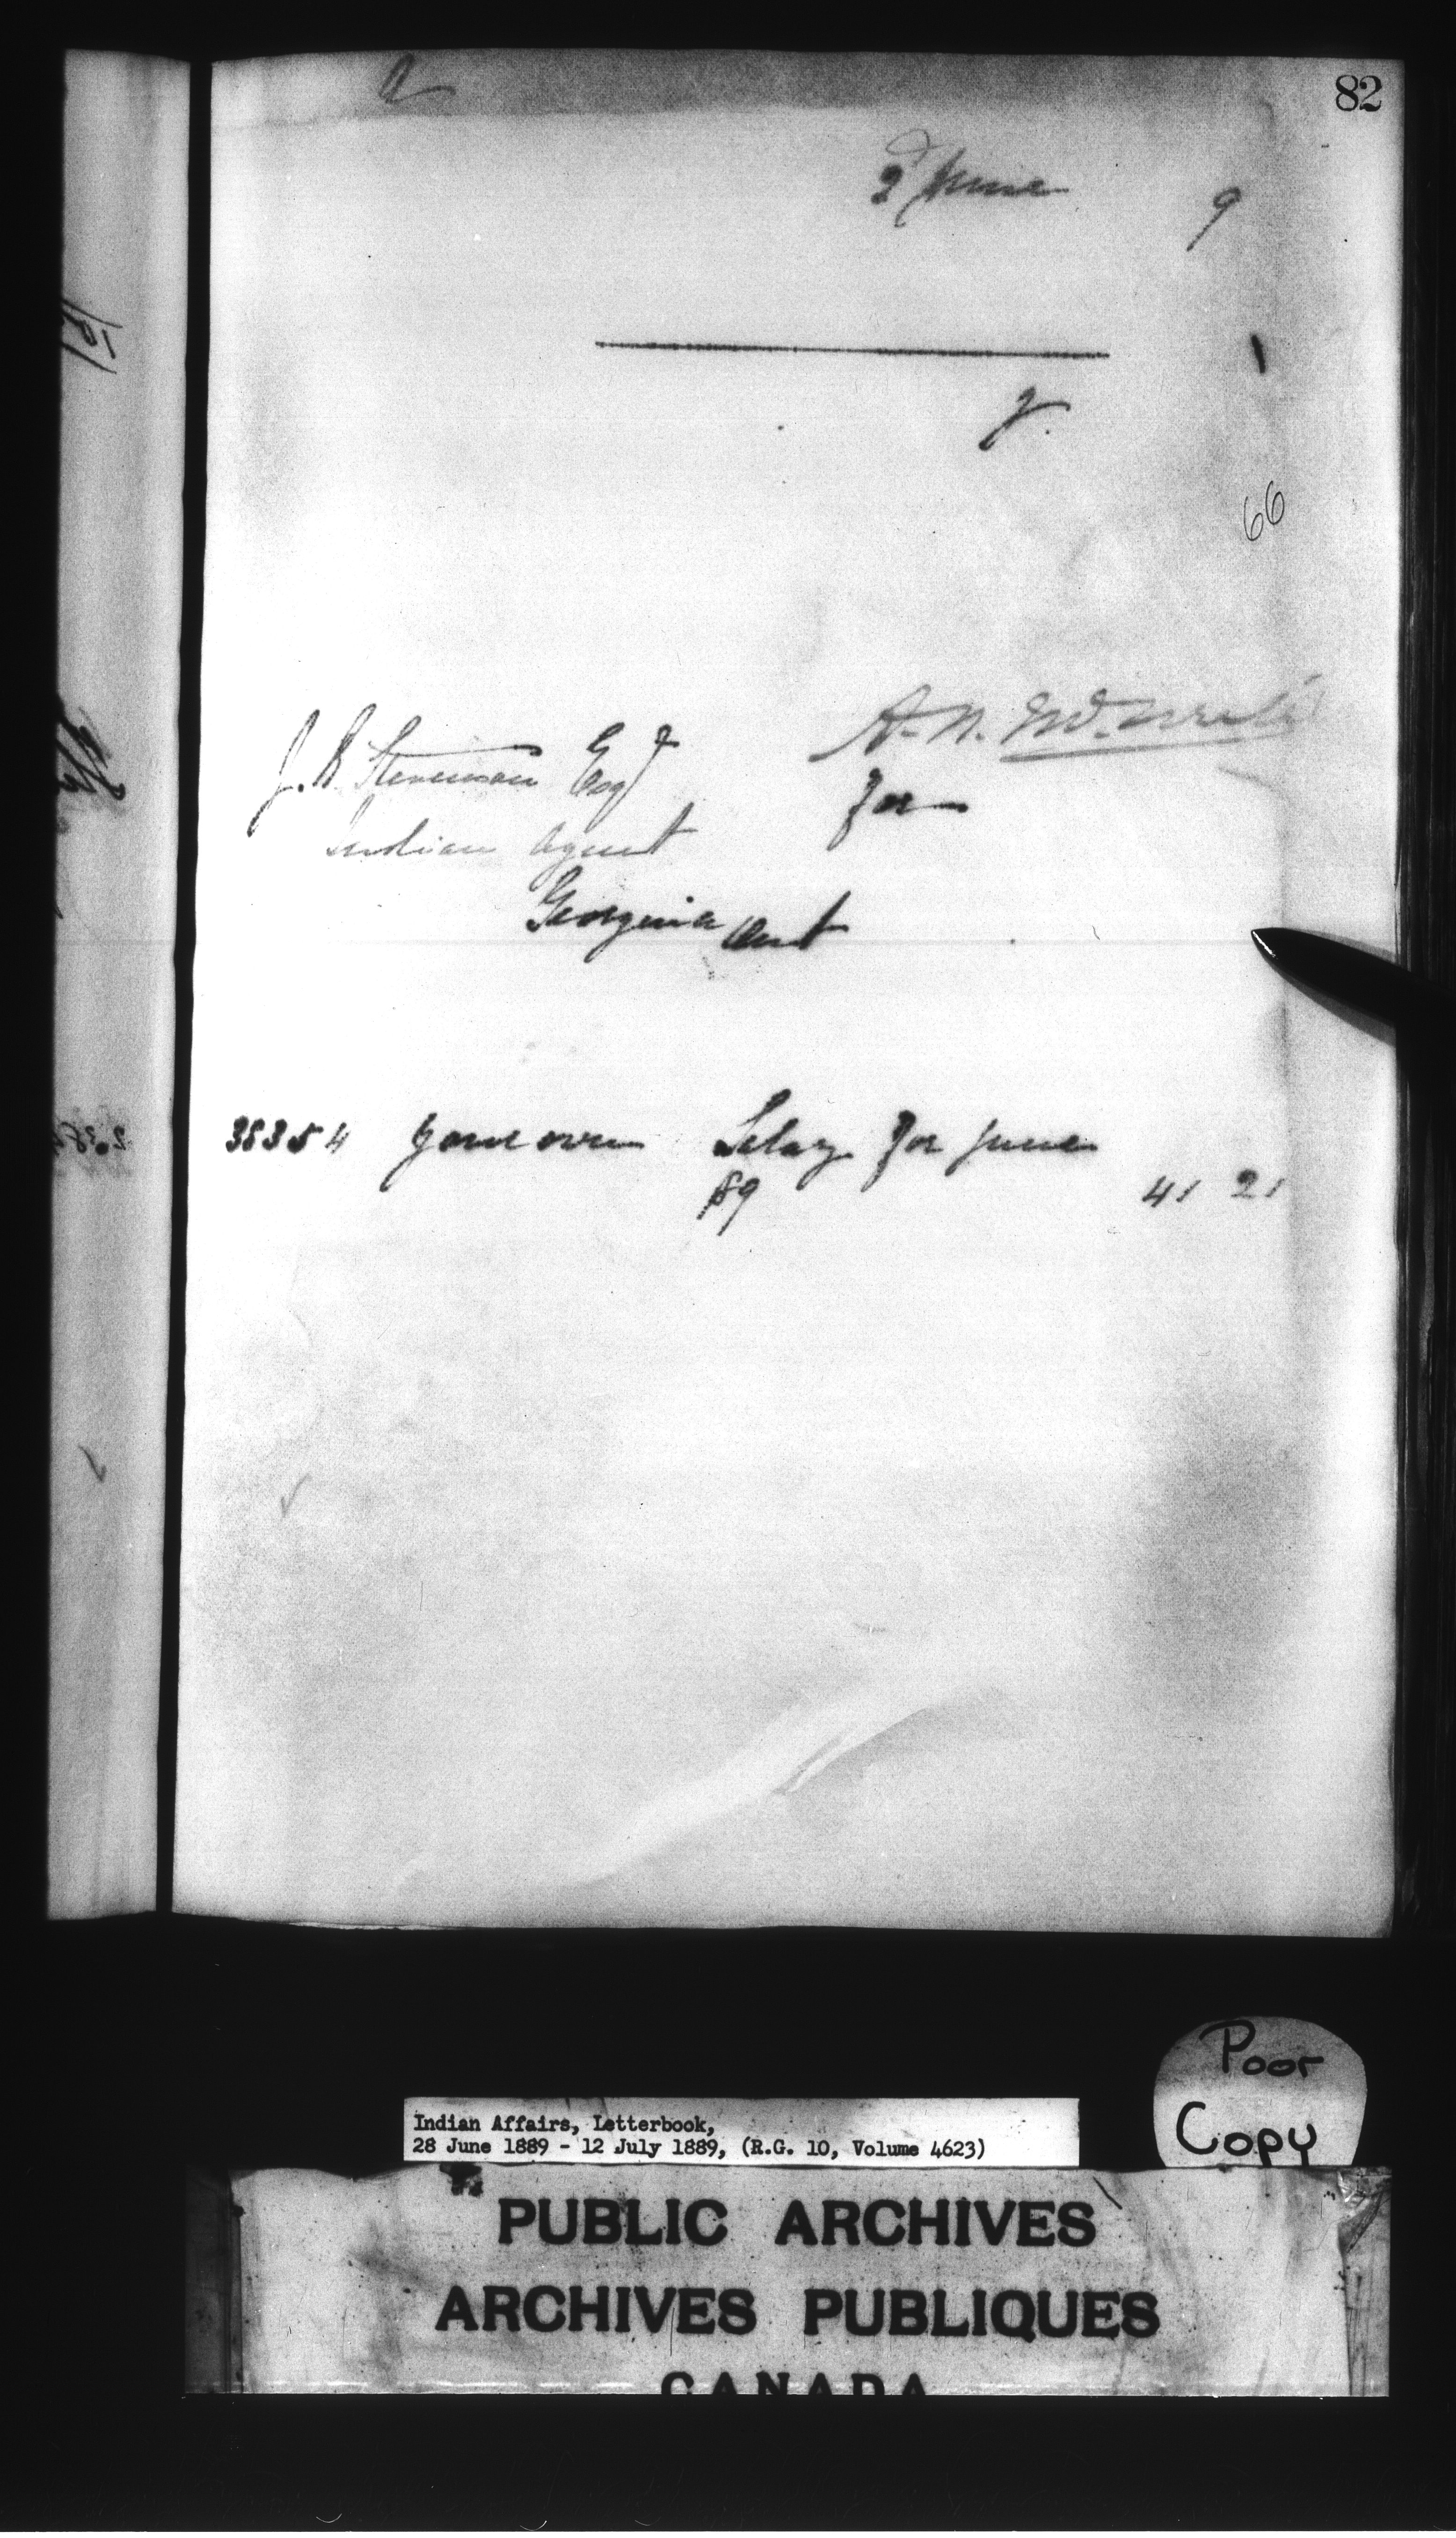 82
2d June 9
66
A. N. McNeill
for
J. B. Stevenson Esqr
Indian Agent
Georgina Ont
38354 your own Salary for June
89 41 21
Poor
Copy
Indian Affairs, Letterbook,
28 June 1889 - 12 July 1889, (R.G. 10, Volume 4623)
PUBLIC ARCHIVES
ARCHIVES PUBLIQUES
CANADA